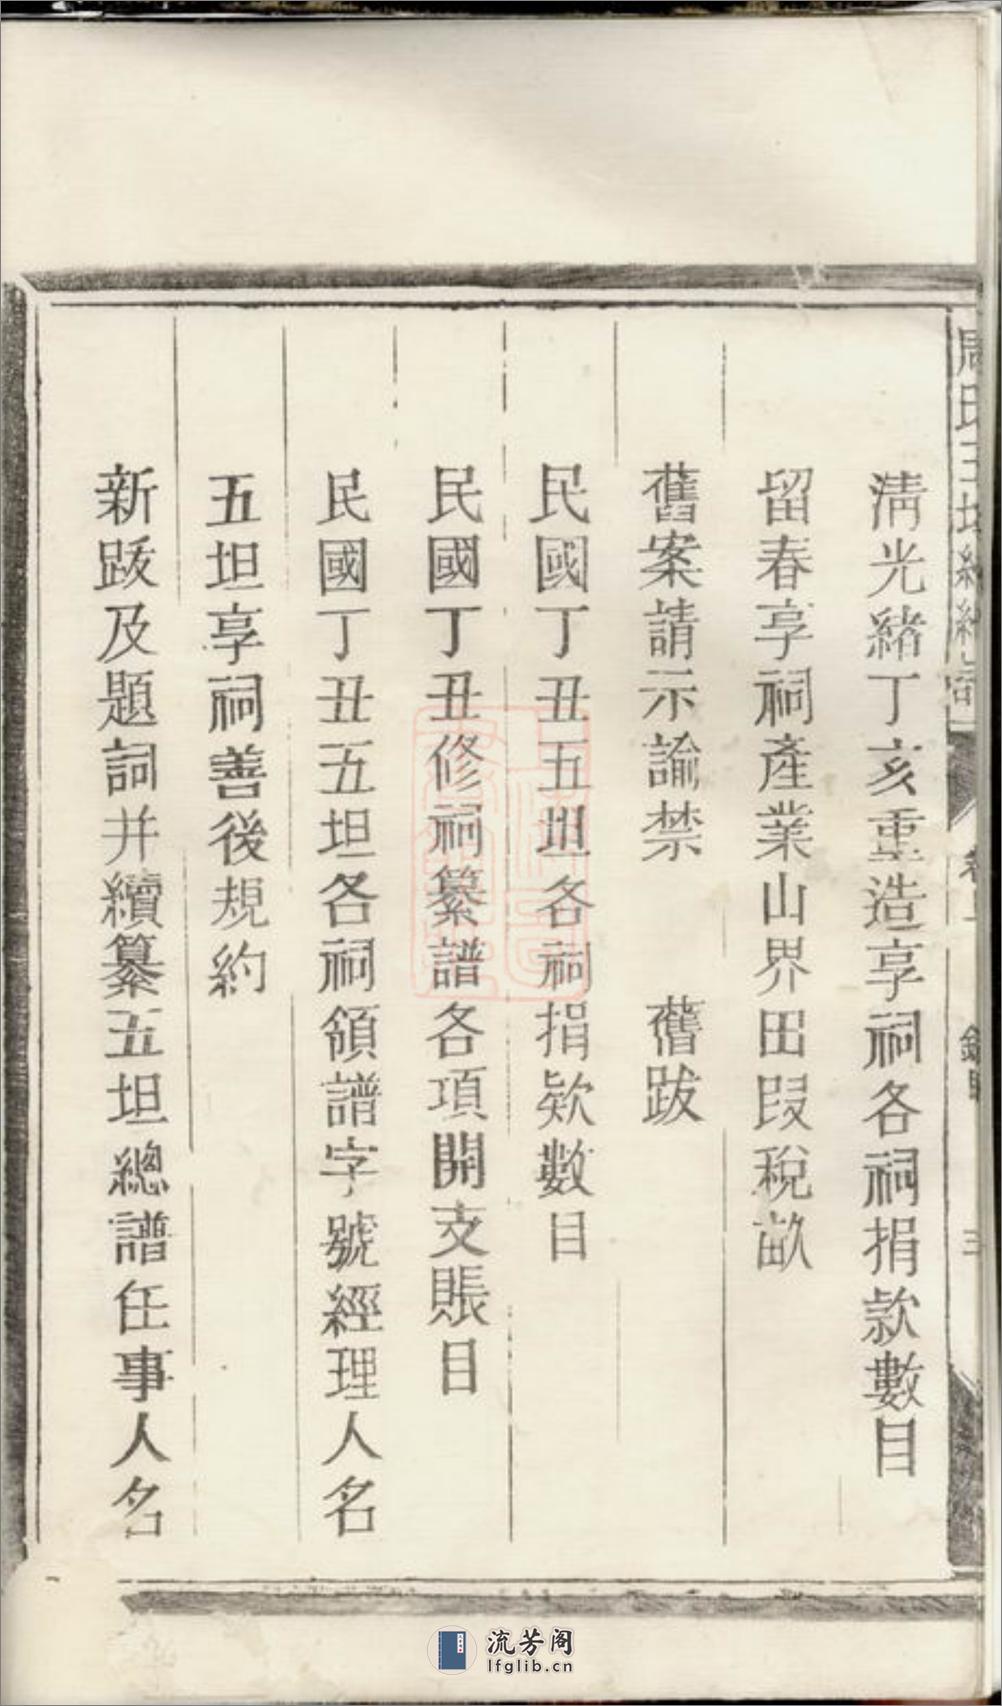 清光緒丁亥重造享祠各祠捐款數目
留春享祠產業山界田段稅畝
舊案請示諭禁 舊跋
民國丁丑五坦各祠捐欵數目
民國丁丑修祠纂譜各項開支賬目
民國丁丑五坦各祠領譜字號經理人名
五坦享祠善後規約
新跋及題詞并續纂五坦總譜任事人名
流芳阁
lfglib.cn